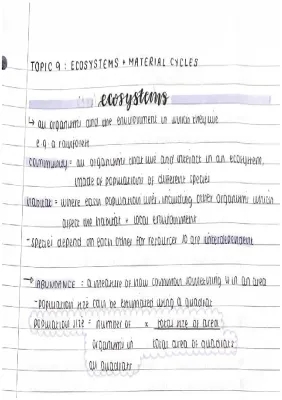 TOPIC 9 : ECOSYSTEMS + MATERIAL CYCLES
ecosystems
↳ all organisms and the environment in which they live
e.g. a rainforest
community = all organisms that live and interact in an ecosystem,
made of populations of different species
habitat = where each population lives, including other organisms which
affect the habitat + local environment
- species depend on each other for resources so are interdependent
→ ABUNDANCE = a measure of how common something is in an area
- population size can be estimated using a quadrat
population size = number of x total size of area
organisms in total area of quadrats
all quadrats